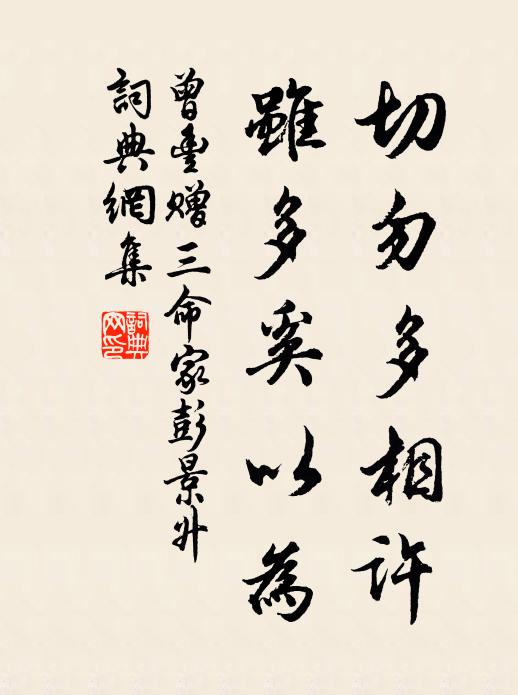 切勿多相許
雖多奚以為
曾豊贈三命家彭景升
詞典網集
詞典
網印